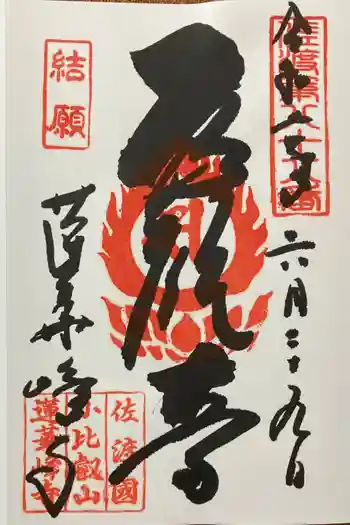 佐渡第八十八番
令和六年
六月二十九日
結願
蓮華峰寺
佐渡國
小比叡山
蓮華峰寺